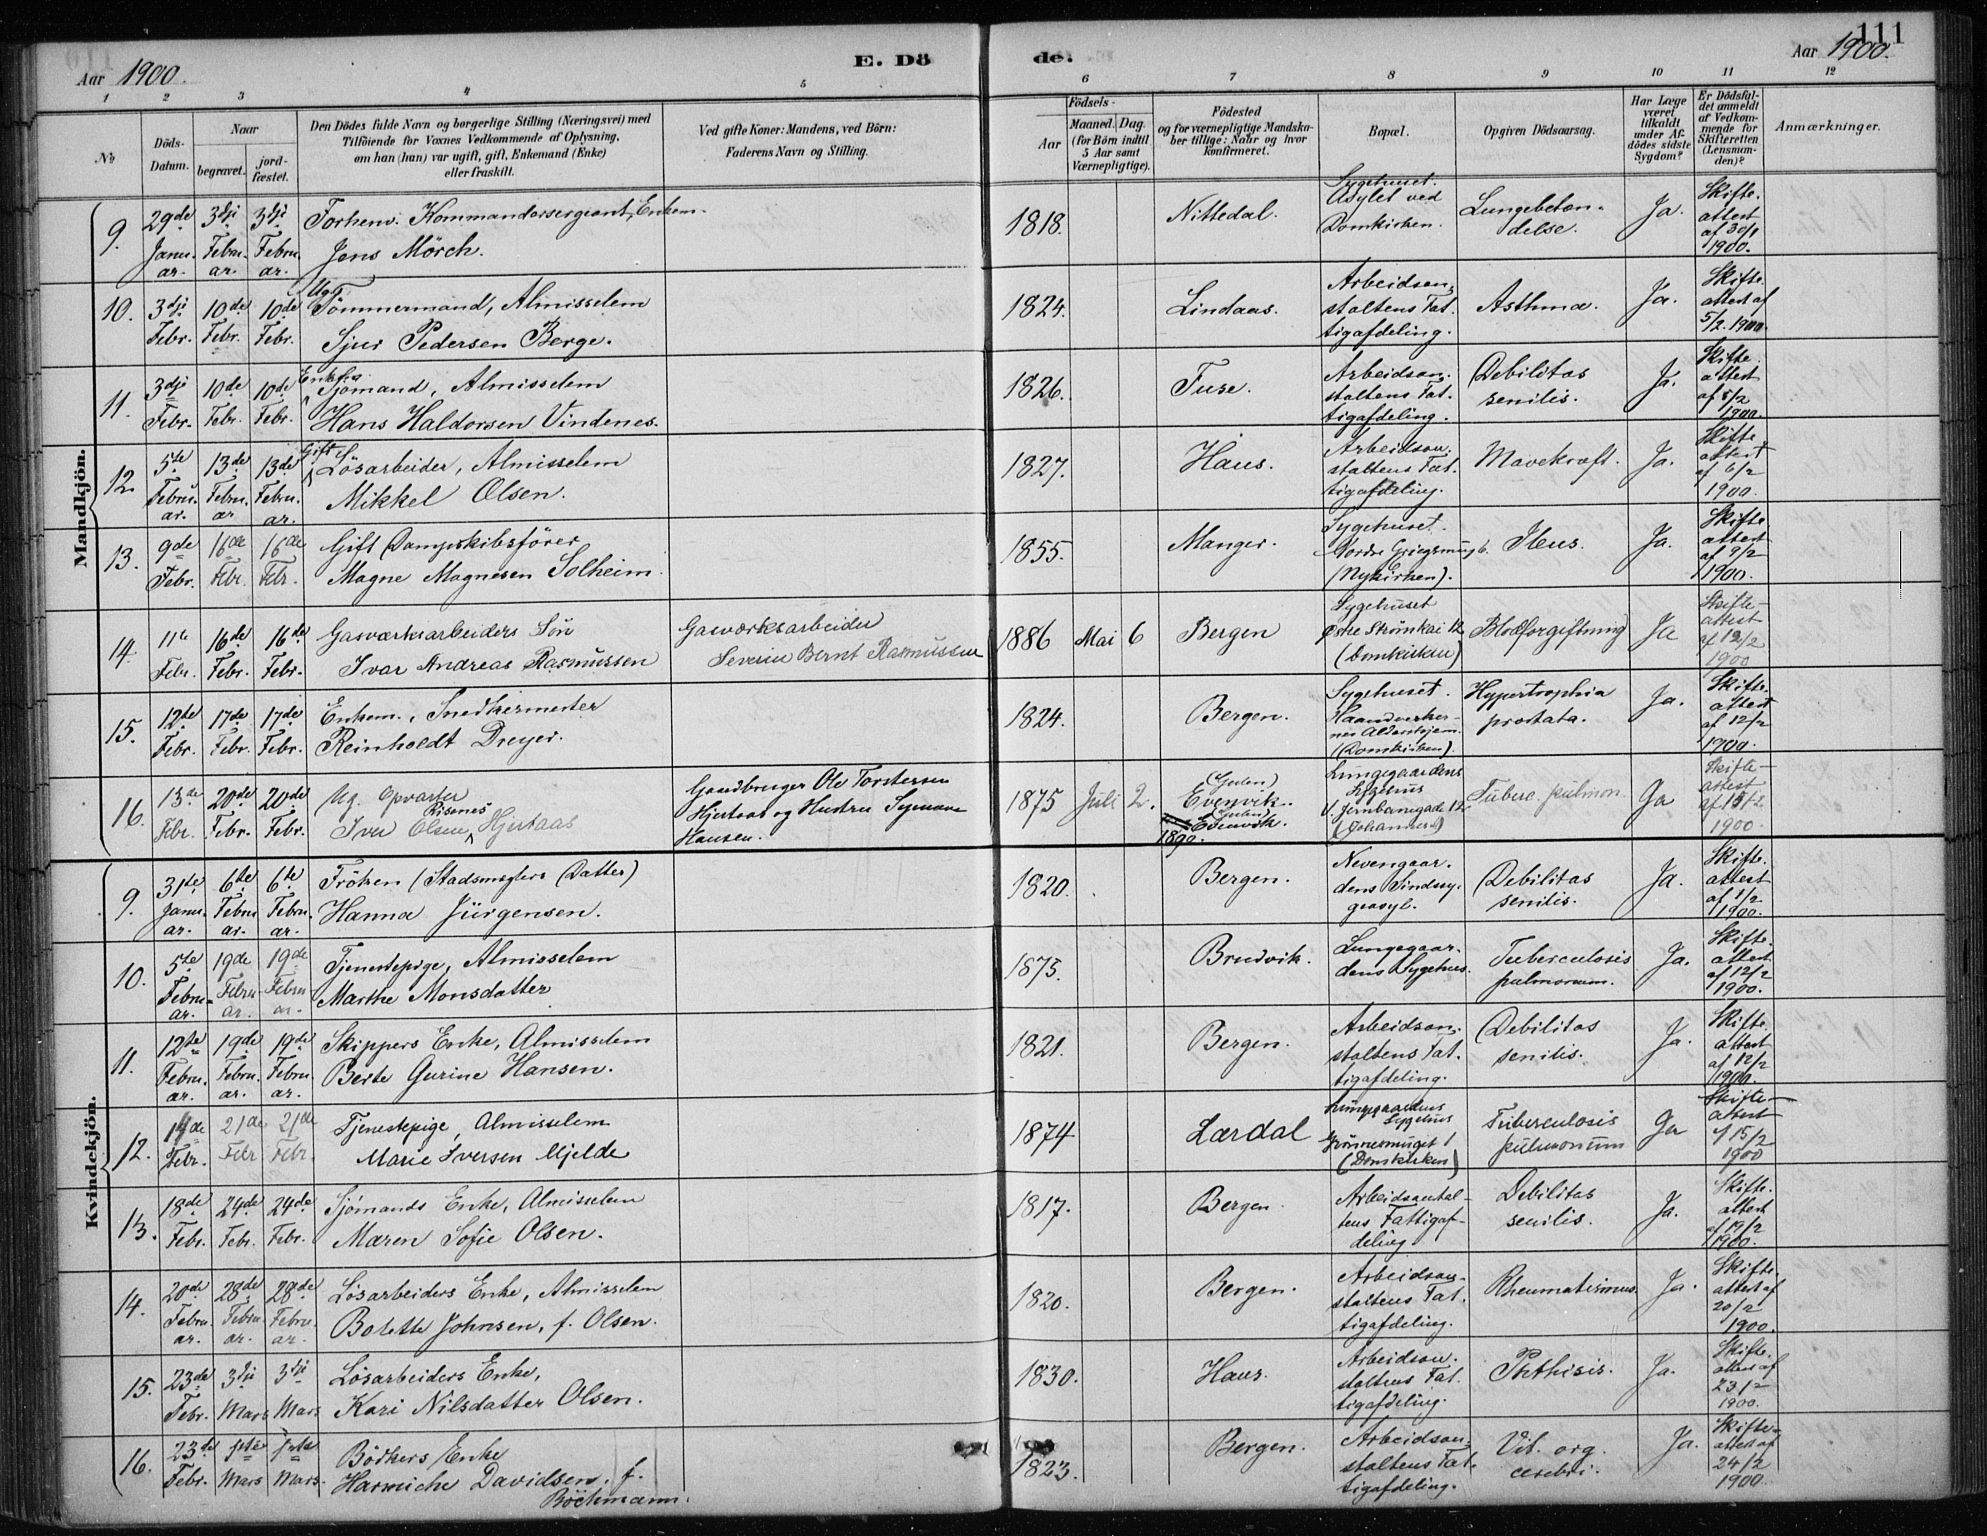 111
Aar 1900.
E. Dö
de.
Aar 1900.
1 2 3 4 5 6 7 8 9 10 11 12
No
Döds-Datum.
Naar
begravet.
jord-fæstet.
Den Dödes fulde Navn og borgerlige Stilling (Næringsvei) med
Tilföiende for Voxnes Vedkommende af Oplysning,
om han (hun) var ugift, gift, Enkemand (Enke)
eller fraskilt.
Ved gifte Koner: Mandens, ved Börn:
Faderens Navn og Stilling.
Födsels-
Aar
Maaned. Dag.
(for Börn indtil
5 Aar samt
Værnepligtige).
Födested
og for værnepligtige Mandska-
ber tillige: Naar og hvor
konfirmeret.
Bopæl.
Opgiven Dödsaarsag.
Har Læge
været
tilkaldt
under Af-
dödes sidste
Sygdom?
Er Dödsfal-
det anmeldt
af Vedkom-
mende for
Skifteretten
(Lensman-
den)?
Anmærkninger.
Mandkjön.
9. 29de Januar. 3dje Februar. 3dje Februar. Forhenv. Kommandersergeant, Enkem.
Jens Mörch.
1818. Nittedal. Sygehuset. Asylet ved Domkirken. Lungebetændelse. Ja. Skifteattest af 30/1 1900.
10. 3dje Febr. 10de Febr. 10de Febr. Ugt. Tömmermand, Almisselem
Sjur Pedersen Berge.
1824. Lindaas. Arbeidsanstaltens Fattigafdeling. Asthma. Ja. Skifteattest af 5/2. 1900.
11. 3dje Febr. 10de Febr. 10de Febr. Sjömand, Almisselem
Hans Haldorsen Vindenes.
1826. Fuse. Arbeidsanstaltens Fattigafdeling. Debilitas senilis. Ja. Skifteattest af 5/2 1900.
12. 5te Februar. 13de Februar 13de Februar. Gift Lösarbeider, Almisselem
Mikkel Olsen.
1827. Haus. Arbeidsanstaltens Fattigafdeling. Mavekræft. Ja. Skifteattest af 6/2 1900.
13. 9de Febr. 16de Febr. 16de Febr. Gift Dampskibsförer
Magne Magnesen Solheim.
1855. Manger. Sygehuset. Nordre Griegsmug 6. (Nykirken). Ileus. Ja. Skifteattest af 9/2 1900.
14. 11te Febr. 16de Febr. 16de Febr. Gasværksarbeiders Sön
Ivar Andreas Rasmussen
Gasværksarbeider
Severin Bernt Rasmussen
1886 Mai 6 Bergen Sygehuset Østre Strömkai 12 (Domkirken) Blodforgiftning Ja Skifteattest af 12/2 1900
15. 12te Febr. 17de Febr. 17de Febr. Enkem., Snedkermester
Reinholdt Dreyer.
1824. Bergen. Sygehuset. Haandverkernes Aldershjem. (Domkirken). Hypertrophia prostata. Ja. Skifteattest af 12/2 1900.
16. 13de Febr. 20de Febr. 20de Febr. Ug. Opvarter
Iver Olsen Risnes Hjertaas
Gaardbruger Ole Torstensen
Hjertaas og Hustru
Hansen.
1875 Juli 2. (Gulen) Evenvik. (Gulen) Evenvik. 1890. Lungegaardens Sygehus V. Jernbanegade 12 (Johannes) Tuberc. pulmon. Ja Skifteattest af 15/2 1900
Kvindekjön.
9. 31te Januar. 6te Februar. 6te Februar. Fröken (Stadsmæglers Datter)
Hanna Jürgensen.
1820. Bergen. Nevengaardens Sindssygeasyl. Debilitas senilis. Ja. Skifteattest af 1/2 1900.
10. 5te Februar. 19de Februar. 19de Februar. Tjenestepige, Almisselem
Marthe Monsdatter
1875. Bruvik. Lungegaardens Sygehus. Tuberculosis pulmonum. Ja. Skifteattest af 12/2 1900.
11. 12te Februar. 19de Februar. 19de Februar. Skippers Enke, Almisselem
Berte Gurine Hansen.
1821. Bergen. Arbeidsanstaltens Fattigafdeling. Debilitas senilis. Ja. Skifteattest af 12/2 1900.
12. 14de Febr. 21de Febr 21de Febr. Tjenestepige, Almisselem
Marie Iversen Mjelde
1874 Lærdal Lungegaardens Sygehus (Domkirken) Tuberculosis pulmonum Ja Skifteattest af 15/2 1900
13. 18de Febr. 24de Febr. 24de Febr. Sjömands Enke, Almisselem
Maren Sofie Olsen.
1817. Bergen. Arbeidsanstaltens Fattigafdeling Debilitas senilis. Ja. Skifteattest af 19/2 1900.
14. 20de Februar. 28de Februar. 28de Februar. Lösarbeiders Enke, Almisselem
Bolette Johnsen, f. Olsen.
1820. Bergen. Arbeidsanstaltens Fattigafdeling. Rheumatismus. Ja. Skifteattest af 20/2 1900.
15. 23de Febr. 3dje Mars 3dje Mars Lösarbeiders Enke,
Kari Nilsdatter Olsen.
1830. Haus. Arbeidsanstaltens Fattigafdeling. Phthisis. Ja. Skifteattest af 23/2 1900.
16. 23de Febr. 1ste Mars 1ste Mars. Bödkers Enke
Harmiche Davidsen, f.
Böchmann.
1823. Bergen. Arbeidsanstaltens Fattigafdeling. Vit. org. cerebri. Ja. Skifteattest af 24/2 1900.